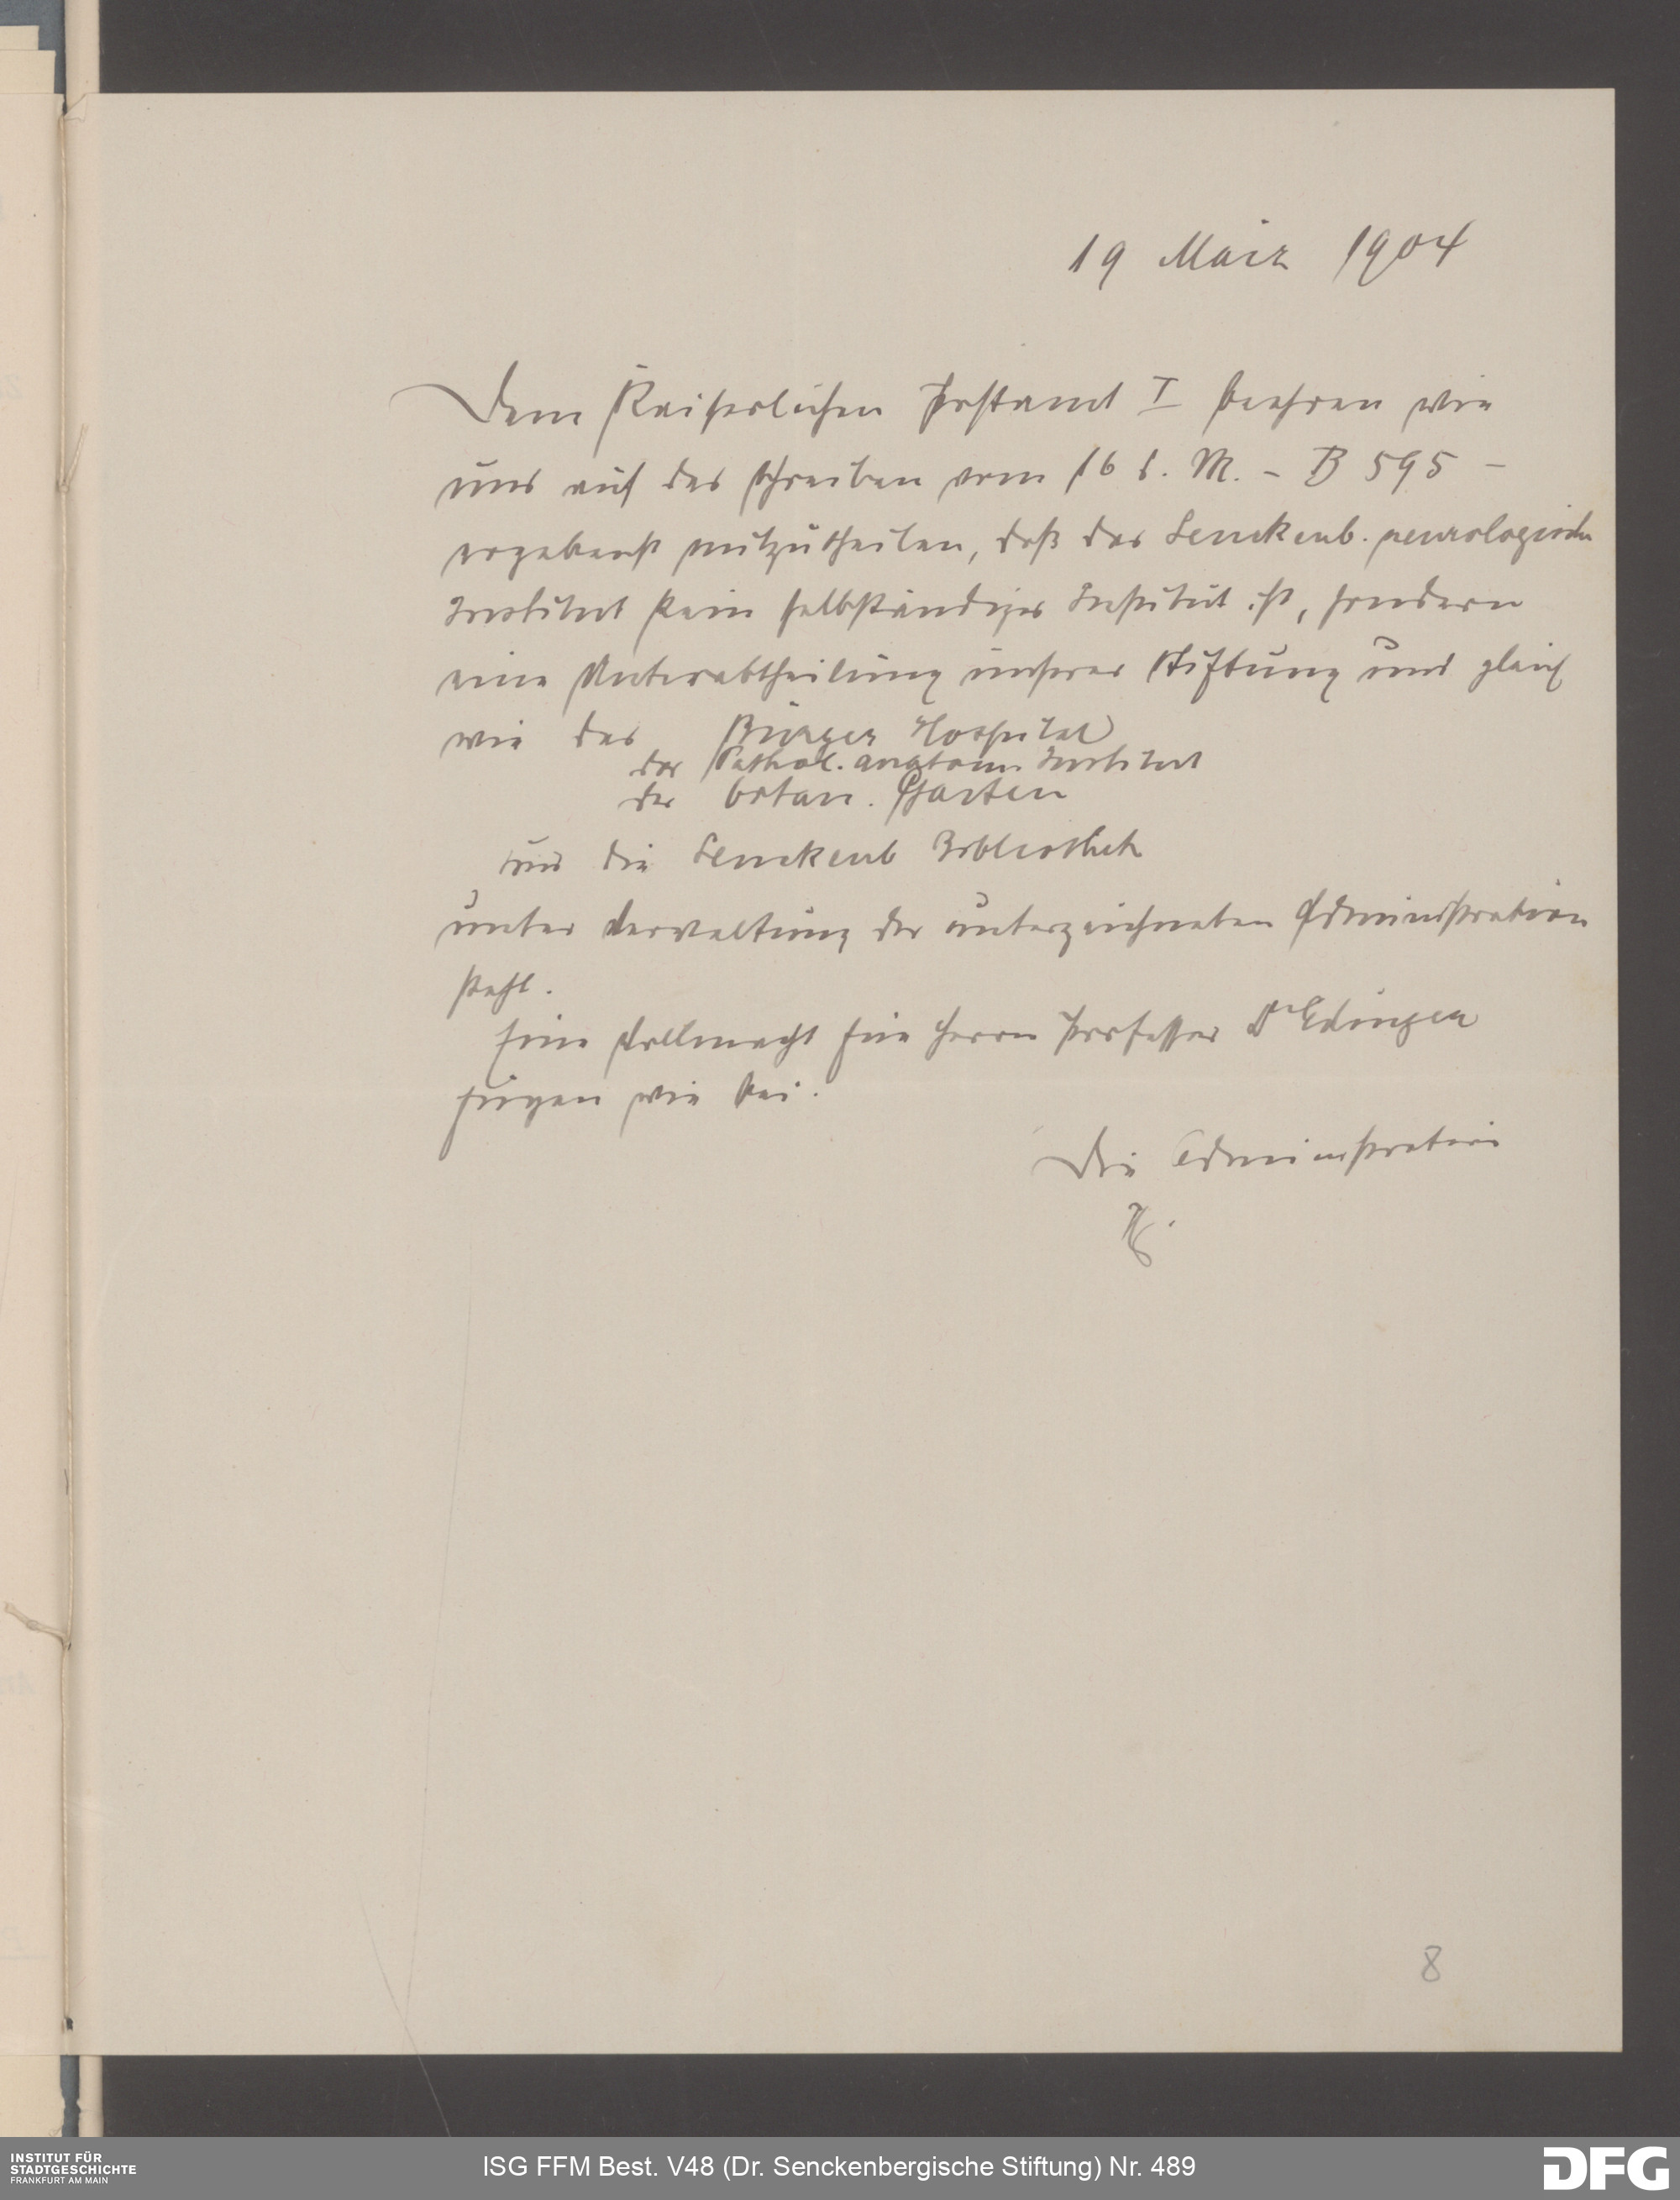 19 März 1904
Dem Kaiserlichen Postamt I beehren wir
uns auf das Schreiben vom 16 d. M. – B 595 –
ergebenst mitzutheilen, daß das Senckenb. neurologische
Institut kein selbständiges Institut ist, sondern
eine Unterabtheilung unserer Stiftung und gleich
wie das Bürger Hospital
das Pathol. anatom. Institut
der botan. Garten
und die Senckenb Bibliothek
unter Verwaltung der unterzeichneten Administration
steht.
Eine Vollmacht für Herrn Professor Dr Edinger
fügen wir bei.
Die Administration
8
INSTITUT FÜR
STADTGESCHICHTE
FRANKFURT AM MAIN
ISG FFM Best. V48 (Dr. Senckenbergische Stiftung) Nr. 489
DFG